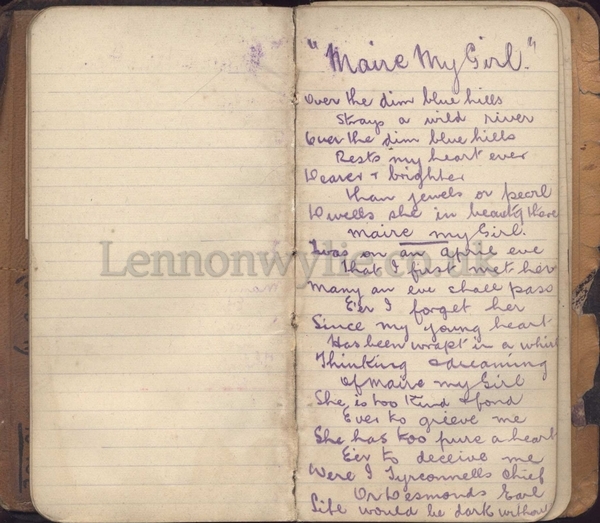 "Maire My Girl."
Over the dim blue hills
Strays a wild river
Over the dim blue hills
Rests my heart ever
Dearer & brighter
than jewels or pearl
Dwells she in beauty there
maire my Girl.
Twas on an april eve
That I first met her
Many an eve shall pass
E'er I forget her
Since my young heart
Has been wrapt in a whirl
Thinking & dreaming
Of Maire my Girl
She is too Kind & fond
Ever to grieve me
She has too pure a heart
E'er to deceive me
Were I Tyrconnells Chief
Or Desmonds Earl
Life would be dark without
Lennonwylie.co.uk